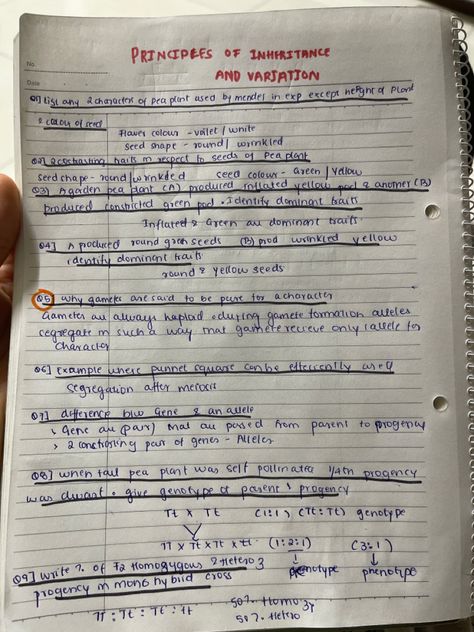 PRINCIPLES OF INHERITANCE
AND VARIATION
No.
Date
Q1] List any 2 characters of pea plant used by mendel in exp except height of plant
2 colour of seed
Flower colour - voilet / white
seed shape - round / wrinkled
Q2] 2 contrasting traits in respect to seeds of Pea plant
seed shape - round / wrinkded seed colour - Green / Yellow
Q3) A garden pea plant (A) produced inflated yellow pod & another (B)
produced constricted green pod. Identify dominant traits
Inflated & Green au dominant traits
Q4] A produced round green seeds (B) prod wrinkled yellow
identify dominant traits
round & yellow seeds
Q5] why gametes are said to be pure for a character
Gametes au always haploid & during gamete formation alleles
segregate in such a way that gamete recieve only 1 allele for
character
Q6] example where punnet square can be effeciently used
segregation after meiosis
Q7] difference b/w Gene & an allele
Gene au (pair) that au passed from parent to progency
2 contrasting pair of genes - Alleles
Q8] when tall pea plant was self pollinated 1/4th progency
was dwarf. give genotype of parent & progency
Tt x Tt (1:1, (Tt:Tt) genotype
TT x Tt x Tt x tt (1:2:1) (3:1)
genotype phenotype
Q9] write %. of F2 Homozygous & Hetero
progency in mono hybrid cross
TT : Tt : Tt : tt 50%. Homo
50%. Hetero